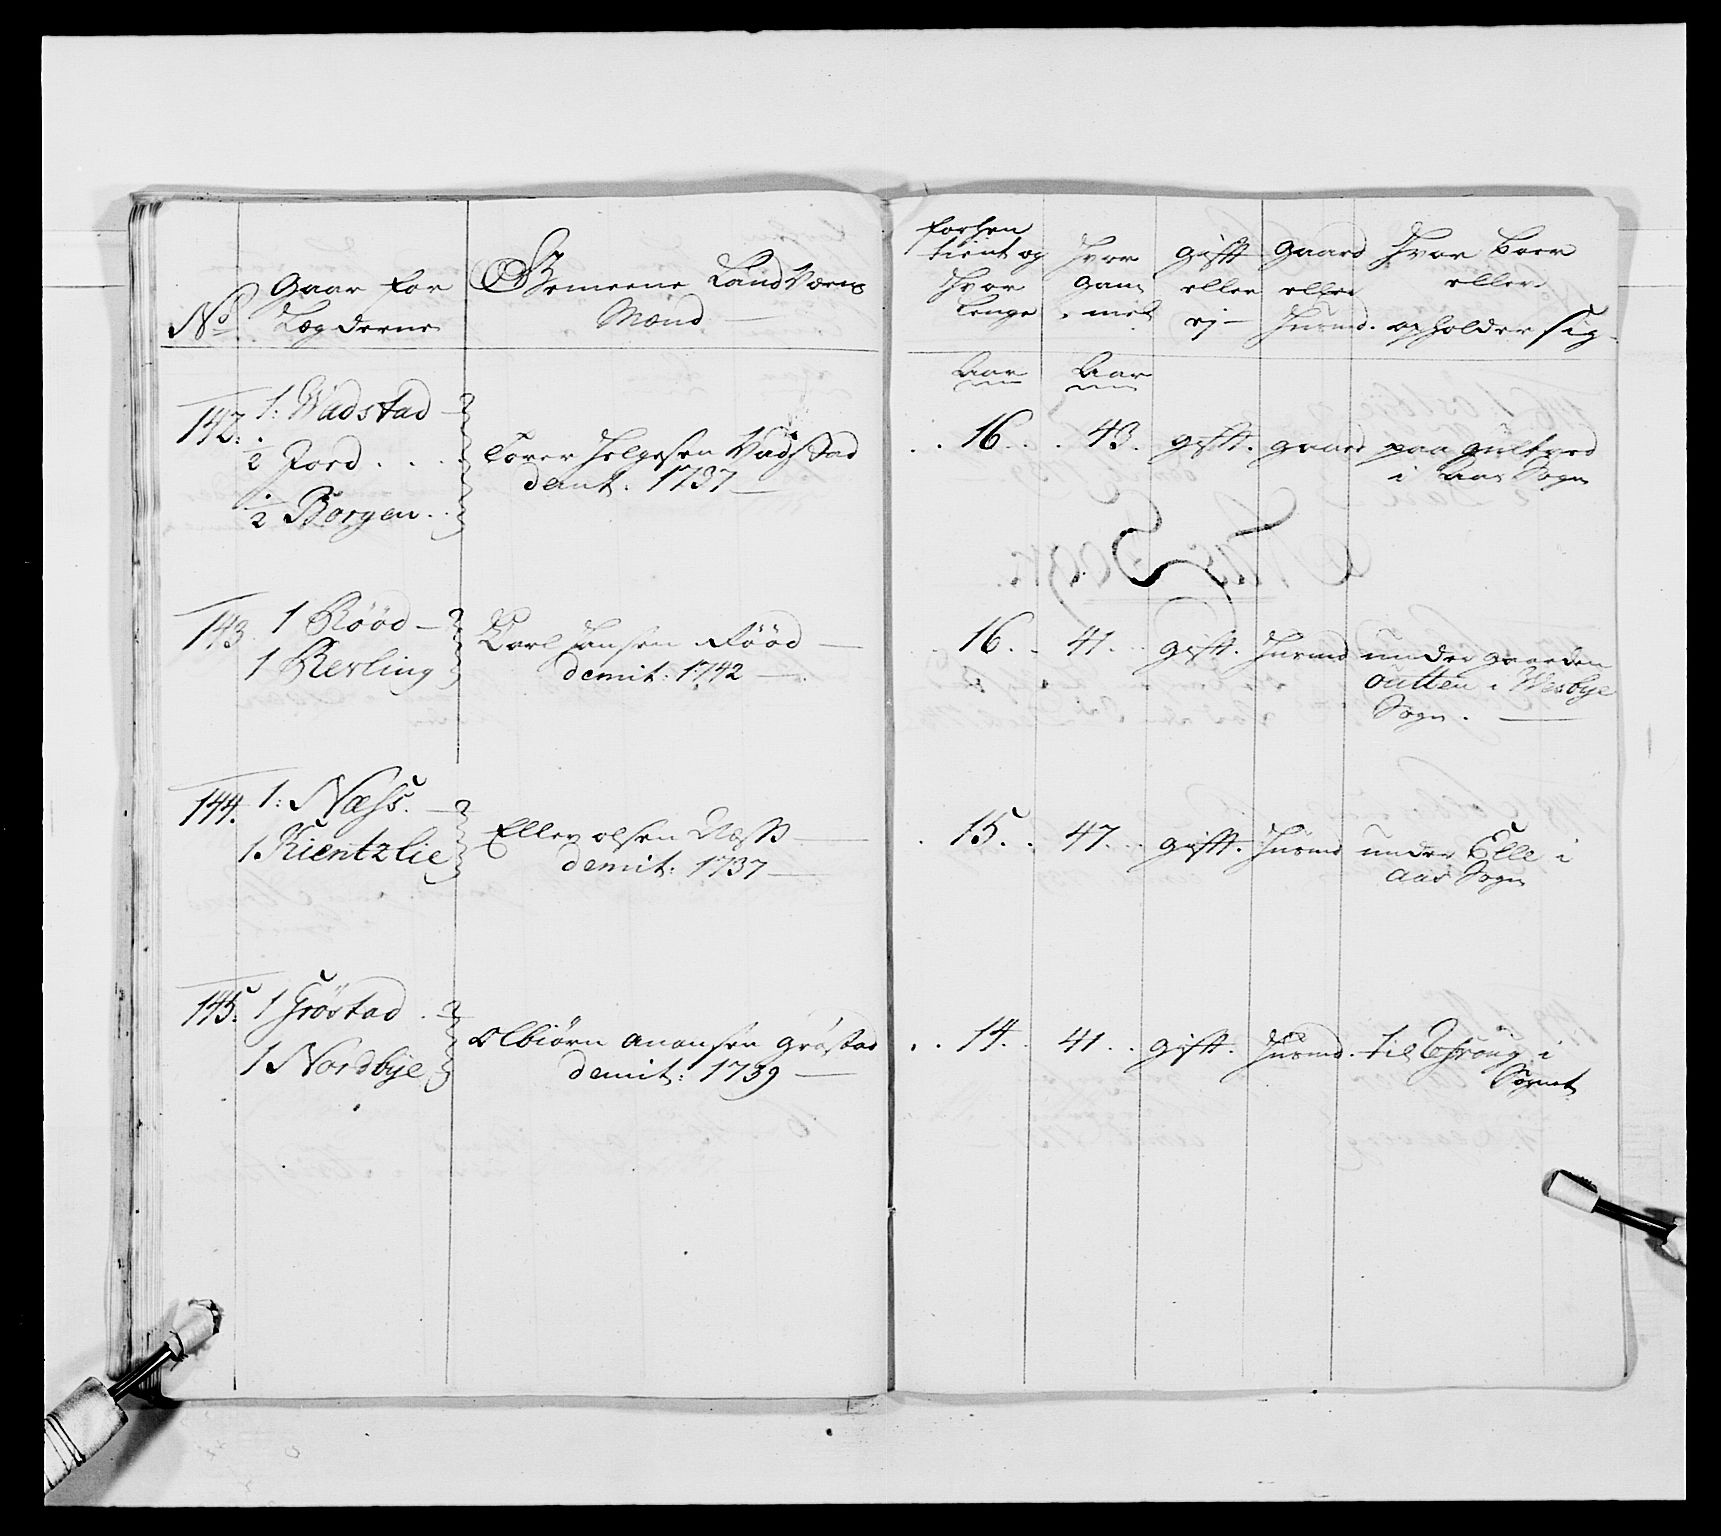 No
Gaar for
Lægderne
Gemeene Land Værns
Mænd
forhen
tient og
Hvor
Lenge
Hvor
gam
mel
gift
eller
ej
gaard
eller
Husmd.
Hvor boer
eller
opholder sig
Aar
Aar
142: 1: Wadstad
1/2 Jord
1/2 Borgen
Torer Helgesen Vadstad
demt. 1737
16. 43. gift. gaard paa
i Aas Sogn
143 1 Rööd
1 Kerling
Carl Jansen Rööd
demit: 1742
16. 41. gift. Husmd under gaarden
outten i Wesbye
Sogn.
144. 1: Næss.
1 Kientzlie
Ellev olsen Næss
demit: 1737
15. 47. gift. Husmd under Elle i
Aas Sogn
145: 1 Gröstad
1 Nordbye
Olbiörn anonsen gröstad
demit: 1739
14. 41. gift. Husmd. til i
Sognet